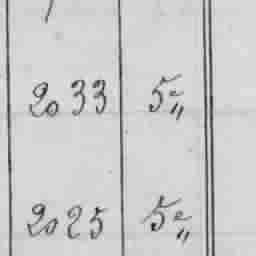 2033 5 "
2025 5 "